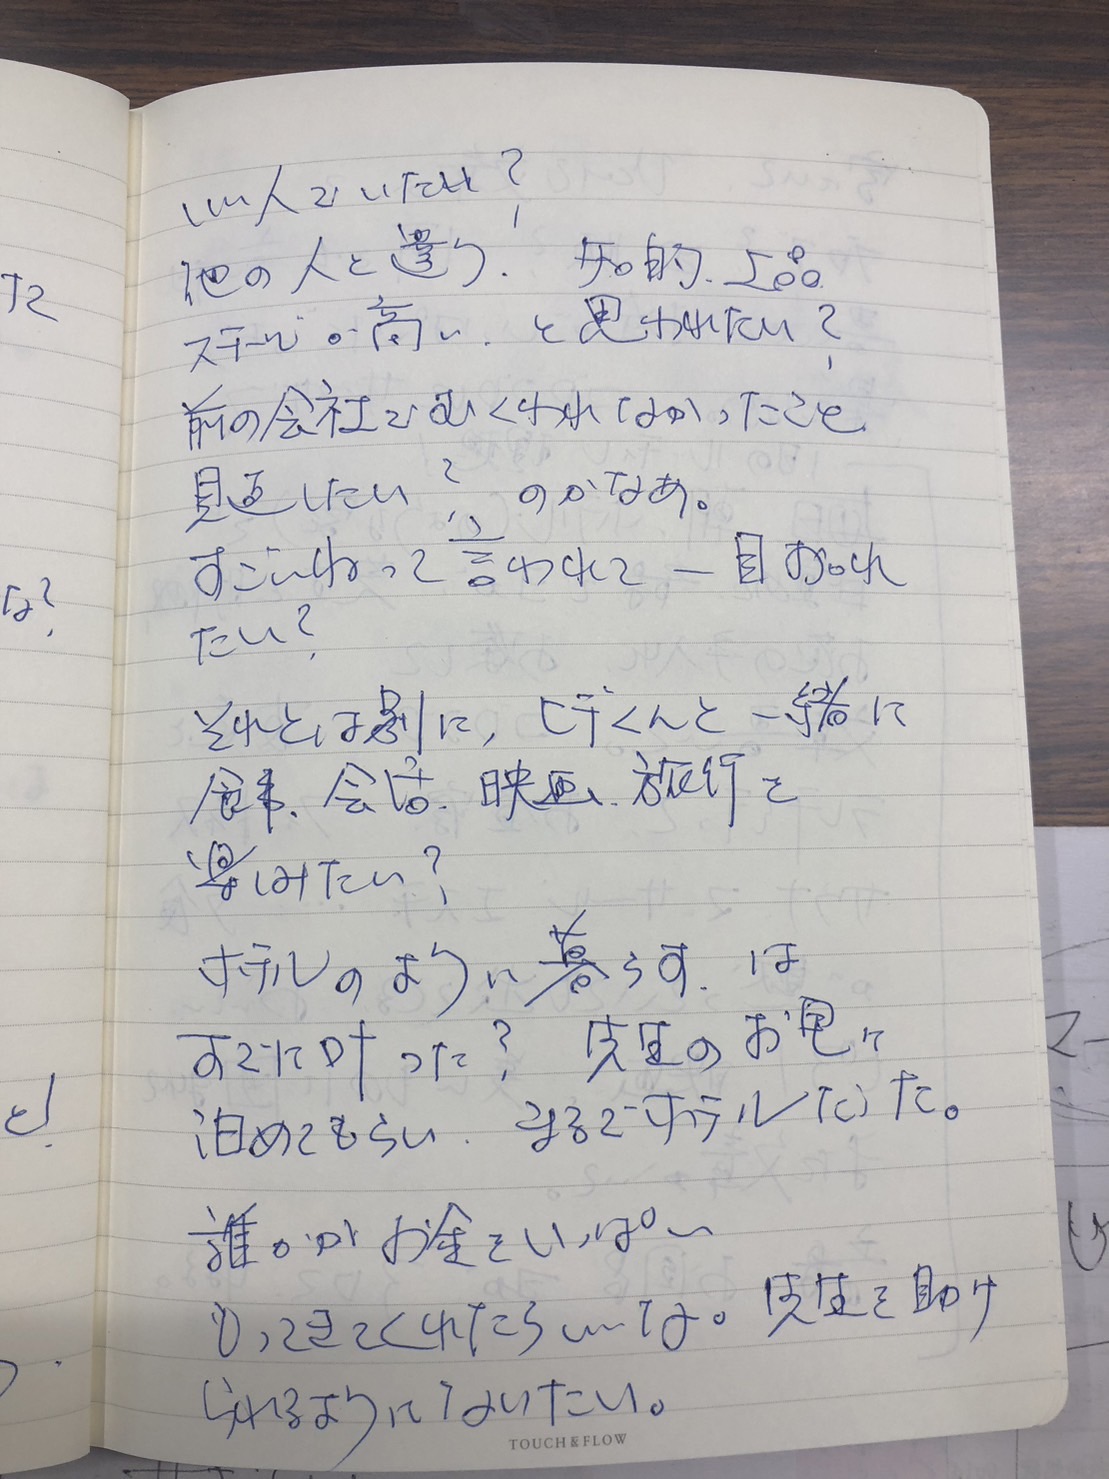 いい人でいたい?
他の人と違う、知的、上品
ステージの高い、と思われたい?
前の会社でむくわれなかったこと
見返したい? のかなあ。
すごいねって言われて一目おかれ
たい?
それとは別に、ヒデくんと一緒に
食事、会話、映画、旅行を
楽しみたい?
ホテルのように暮らす、は
すでに叶った? 先生のお宅に
泊めてもらい、まるでホテルだった。
誰かがお金をいっぱい
もってきてくれたらいいな。先生を助け
られるようになりたい。
TOUCH&FLOW
た
な?
と!